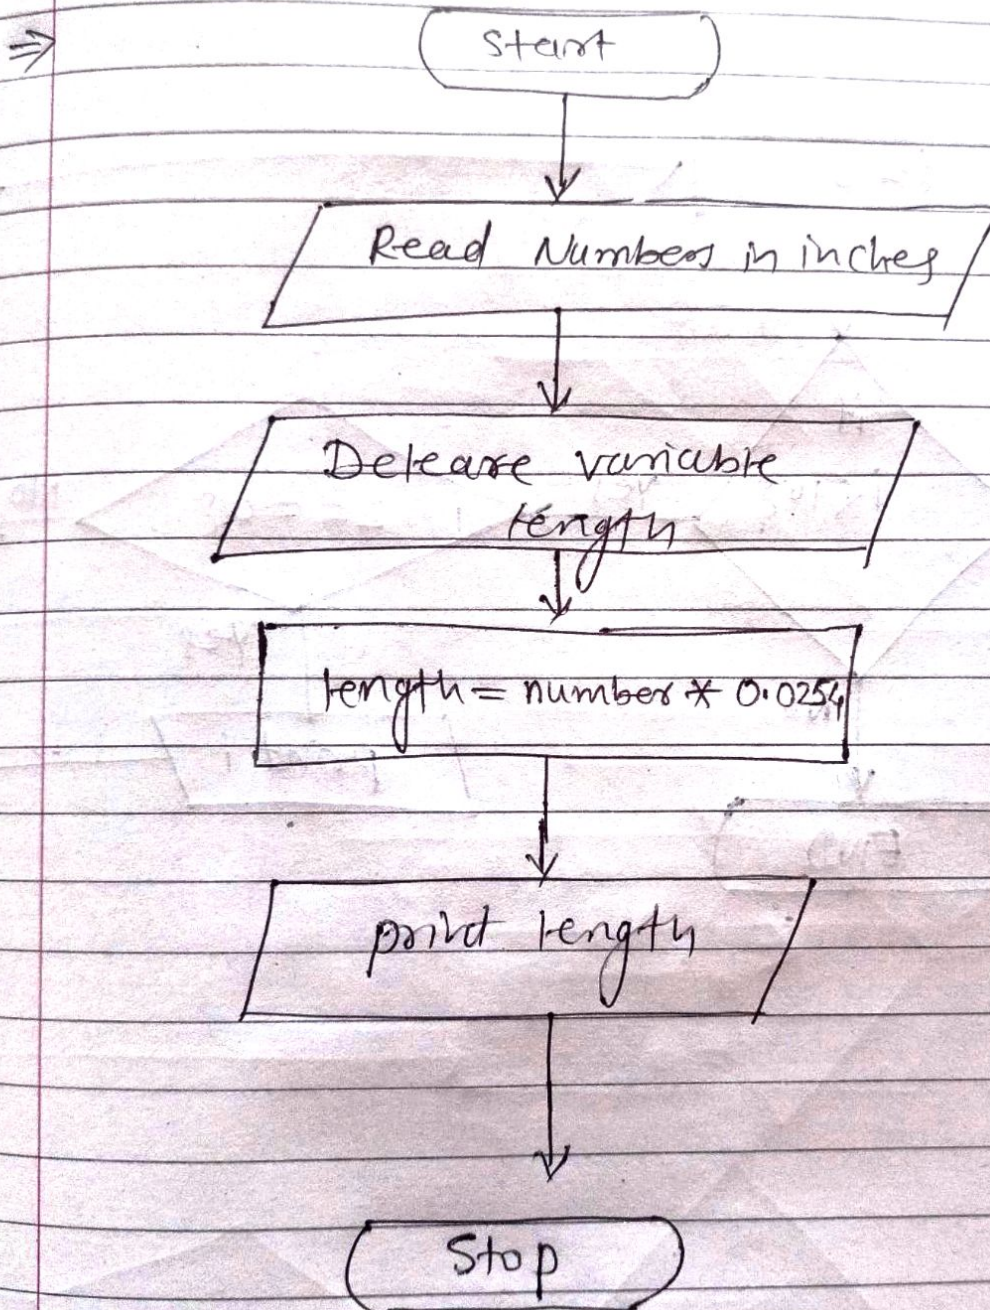 Start
Read Numbers in inches
Deleare variable
length
length = number * 0.0254
print length
Stop